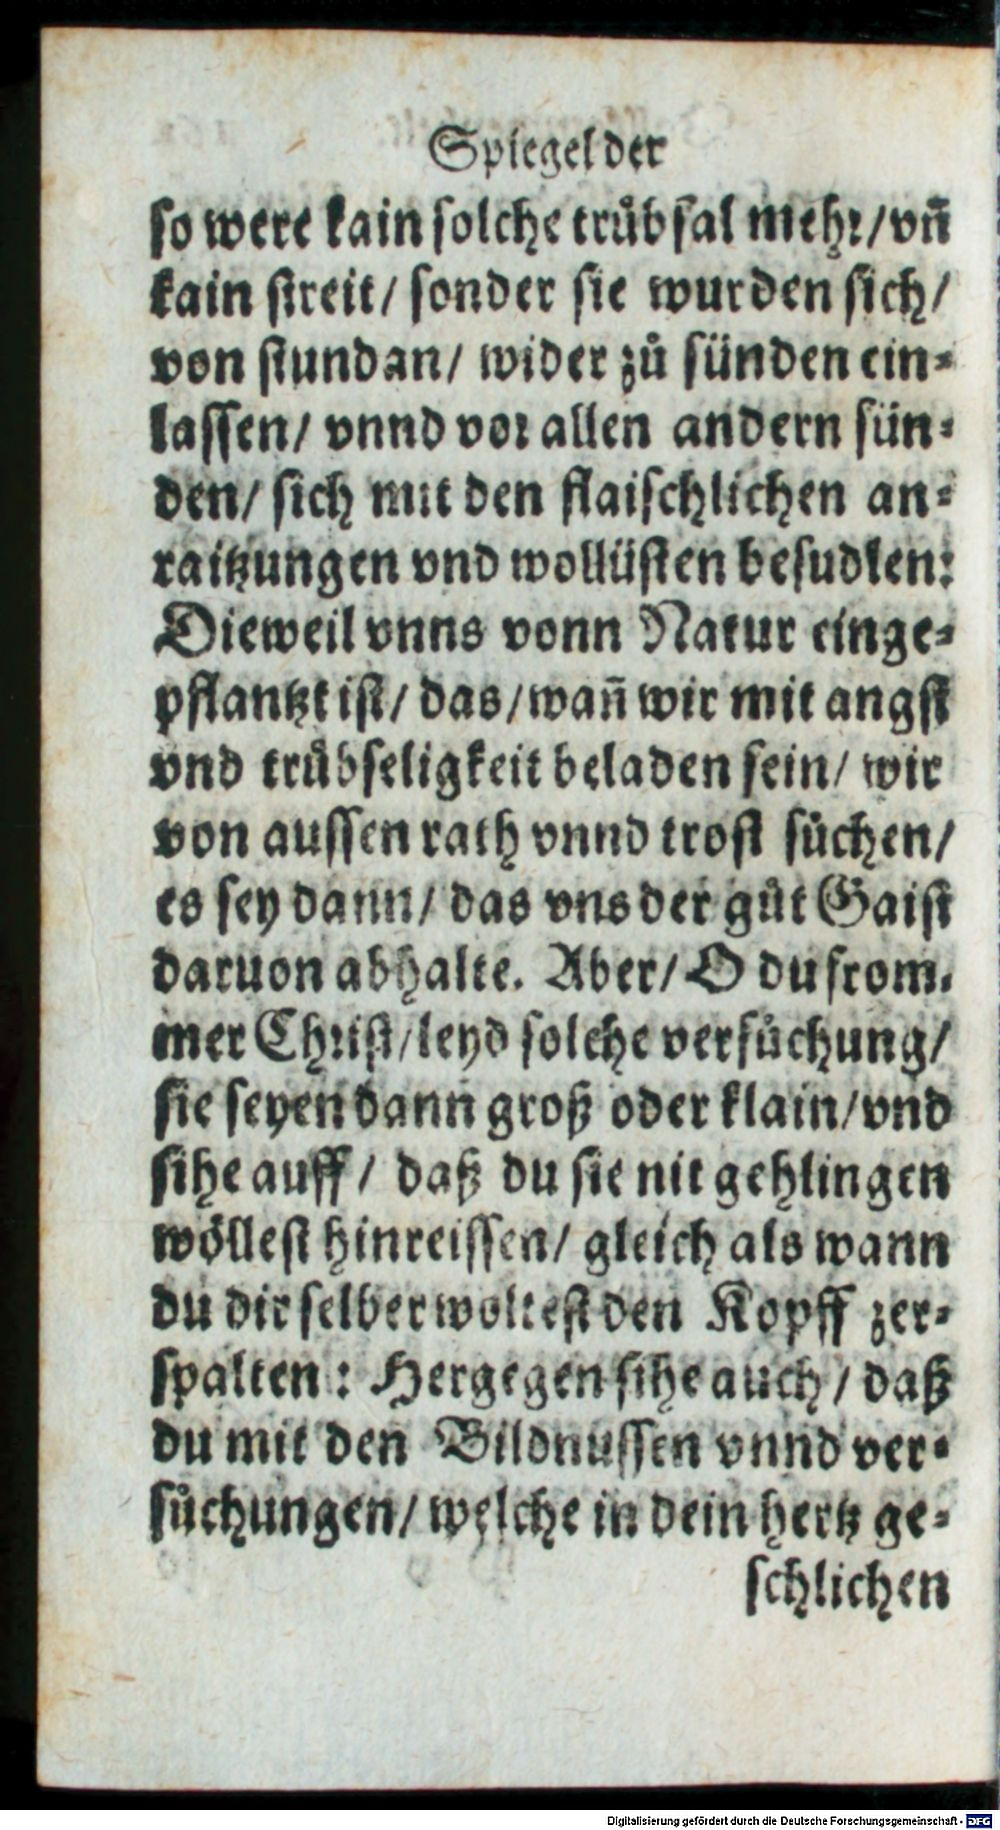 Spiegel der
so were kain solche truͤbsal mehr/ vñ
kain streit/ sonder sie wurden sich/
von stundan/ wider zů sünden ein⸗
lassen/ vnnd vor allen andern sün⸗
den/ sich mit den flaischlichen an⸗
raitzungen vnd wollüsten besudlen:
Dieweil vnns vonn Natur einge⸗
pflantzt ist/ das/ wañ wir mit angst
vnd truͤbseligkeit beladen sein/ wir
von aussen rath vnnd trost sůchen/
es sey dann/ das vns der gůt Gaist
daruon abhalte. Aber/ O du from⸗
mer Christ/ leyd solche versůchung/
sie seyen dann groß oder klain/ vnd
sihe auff/ daß du sie nit gehlingen
wöllest hinreissen/ gleich als wann
du dir selber woltest den Kopff zer⸗
spalten: Hergegen sihe auch/ daß
du mit den Bildnussen vnnd ver⸗
sůchungen/ welche in dein hertz ge⸗
schlichen
Digitalisierung gefördert durch die Deutsche Forschungsgemeinschaft - DFG